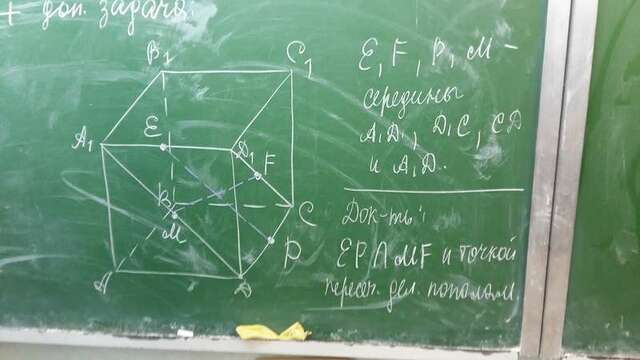 + доп. задача:
B₁
C₁
A₁
E
D₁
F
B
M
C
P
A
D
E, F, P, M -
середины
A₁D₁, D₁C, CD
и A₁D.
Док-ть:
EP ∩ MF и точкой
пересеч. дел. пополам.